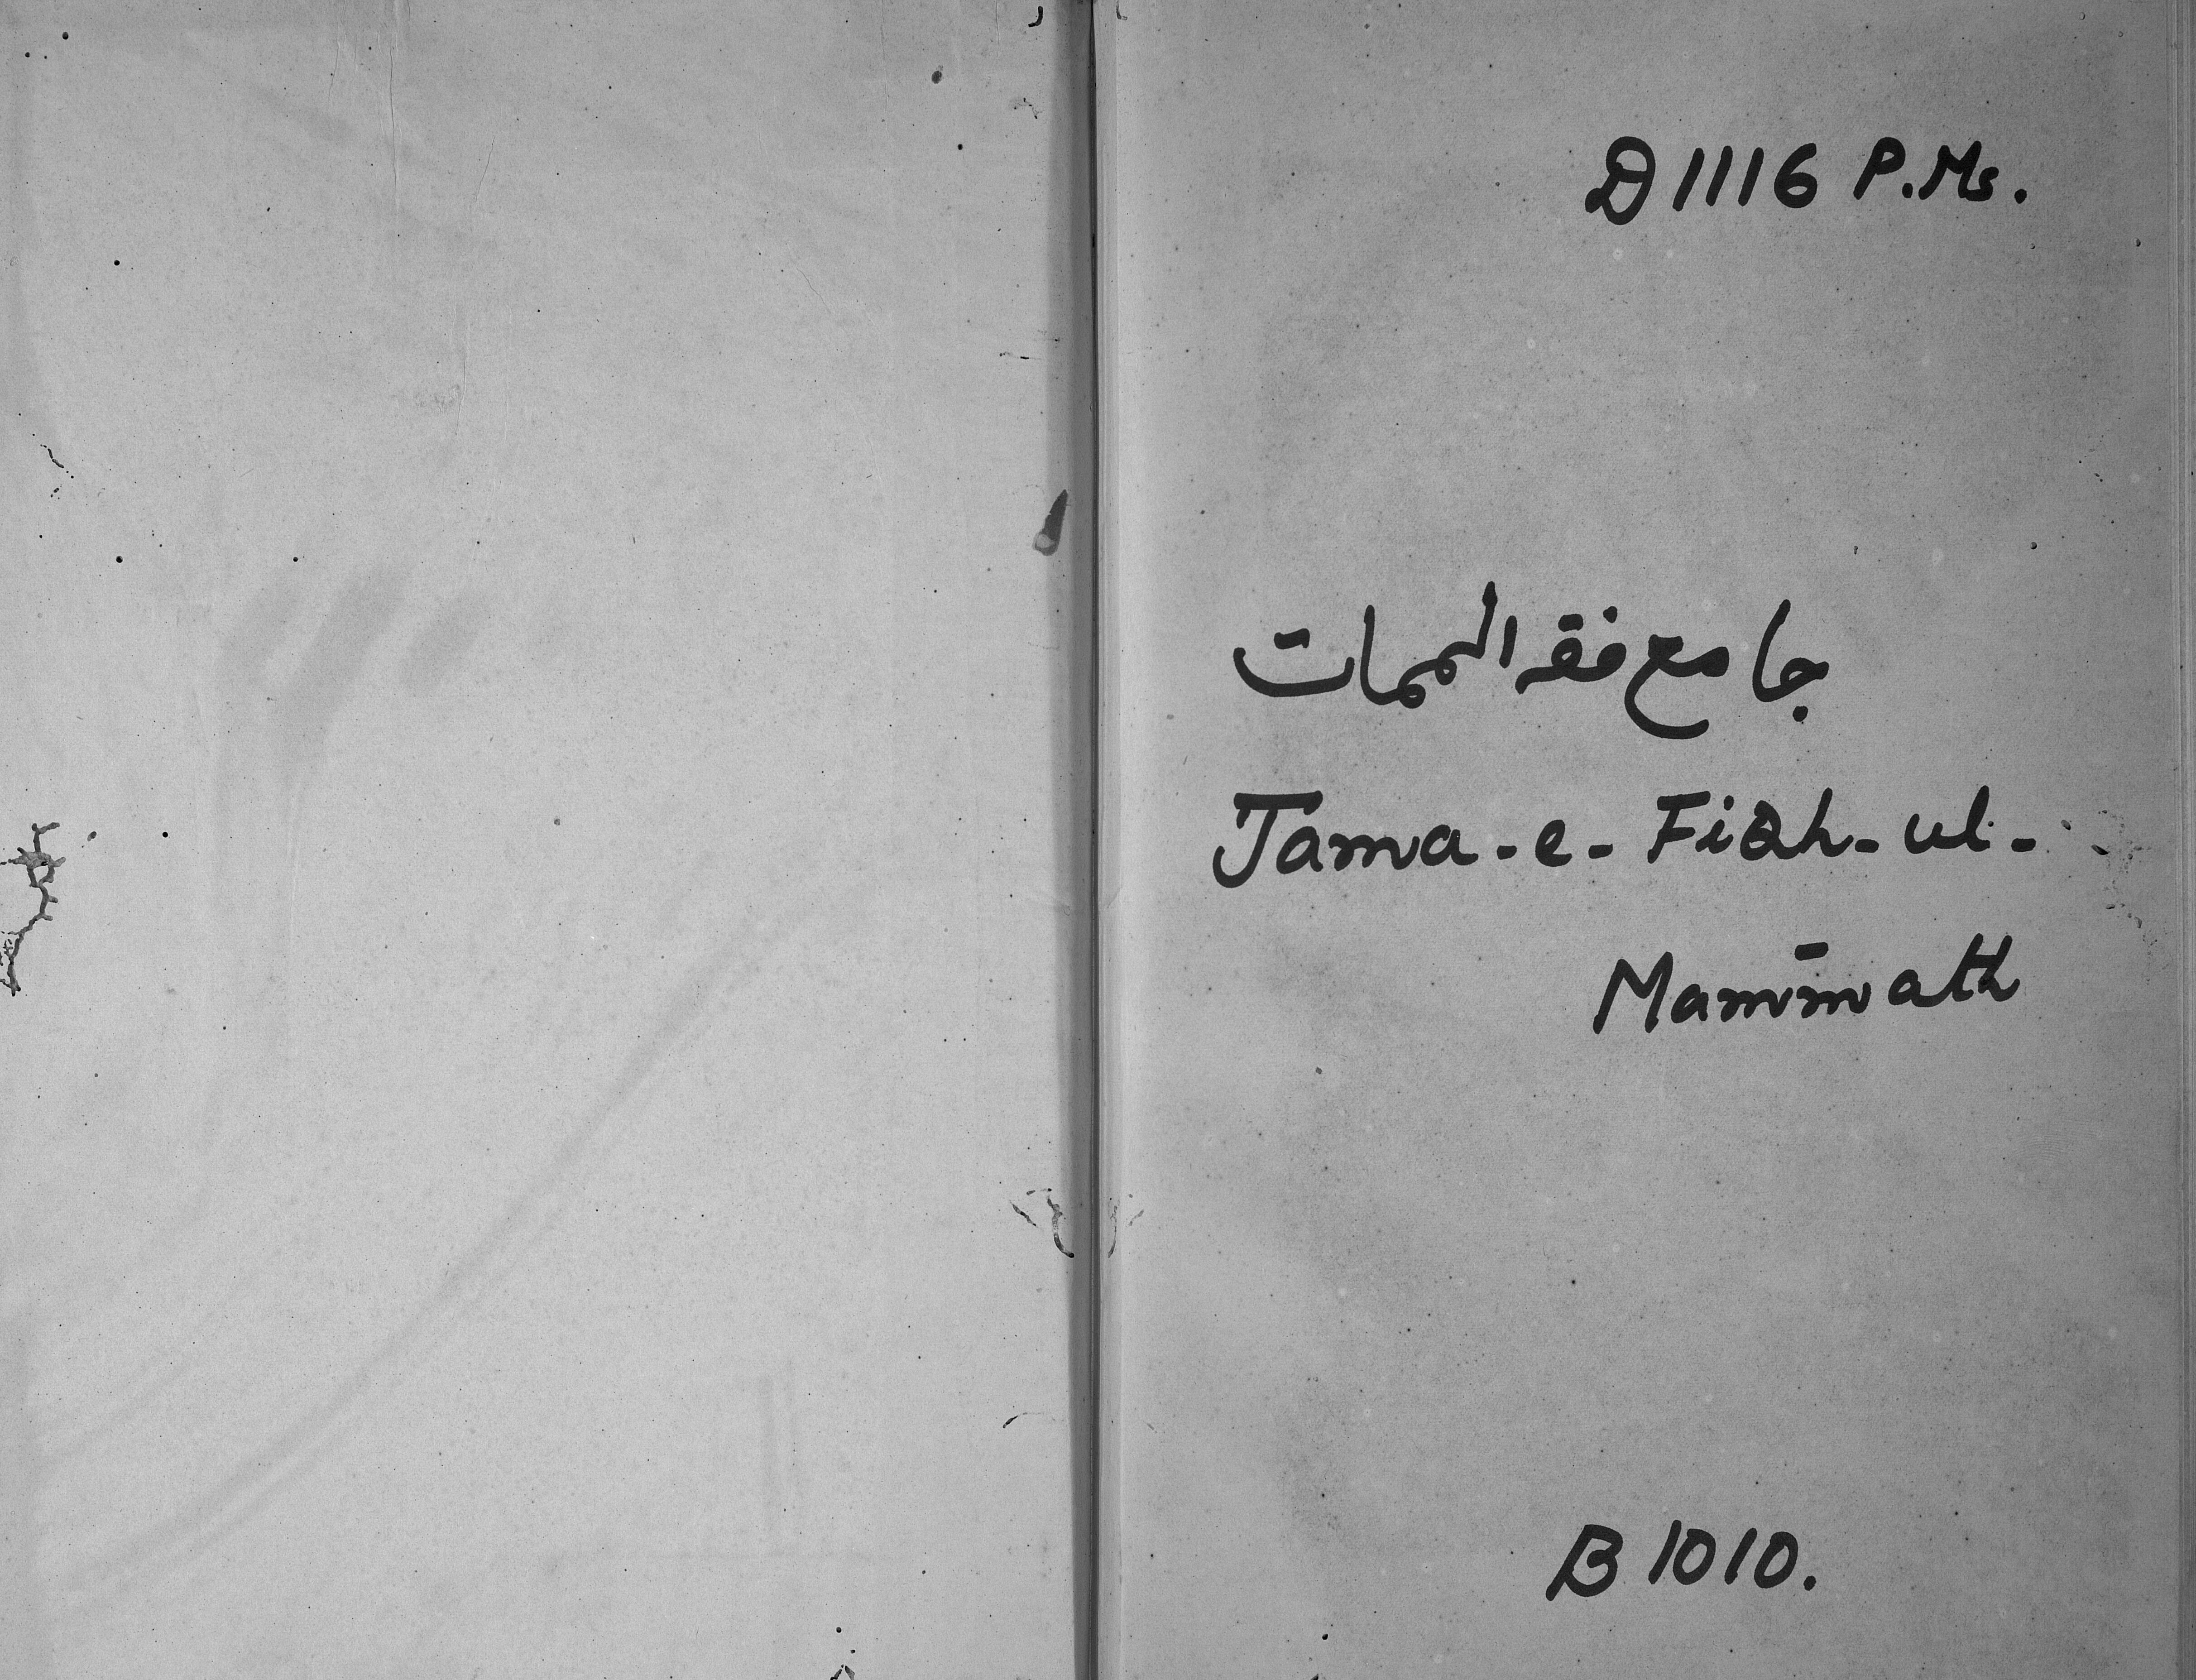 D 1116 P.Ms.
جامع فقہ الممات
Jama-e-Fiqh-ul-
Mammath
B 1010.